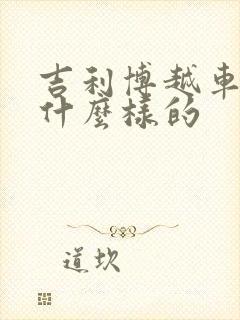 吉利博越車
什麼樣的
道坎